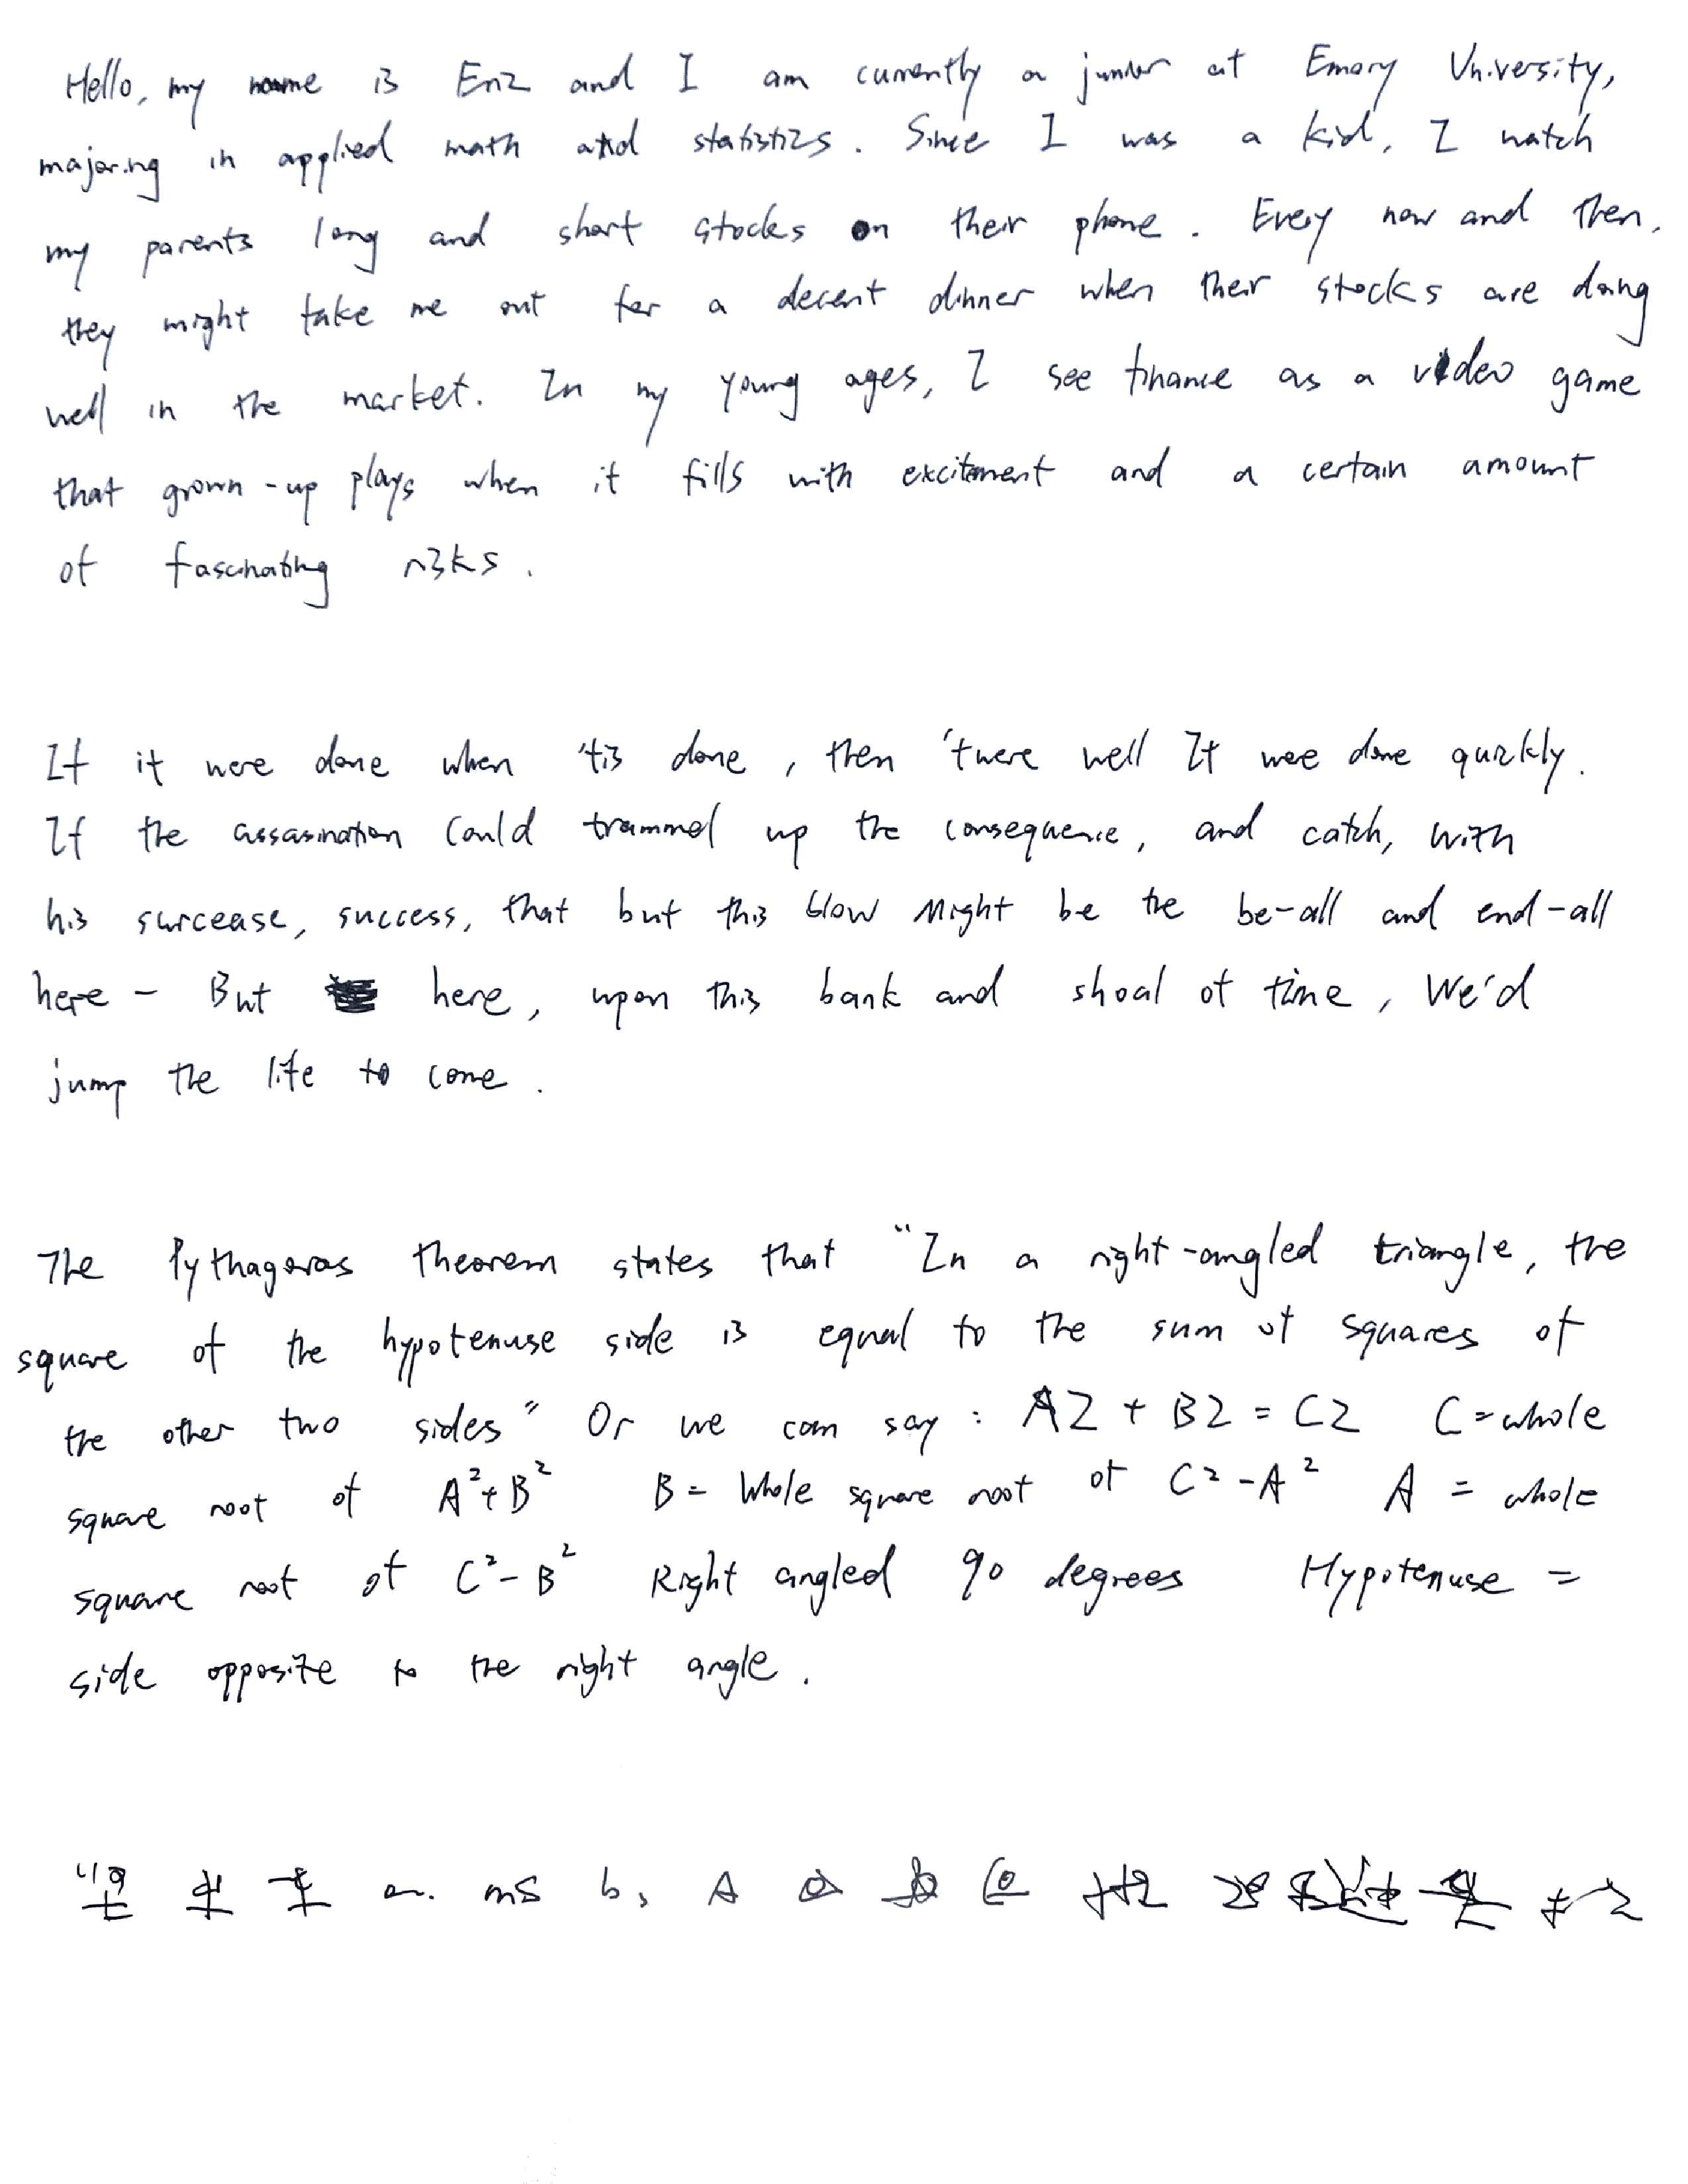 Hello, my name is and I am currently a junior at Emory University,
majoring in applied math and statistics. Since I was a kid, I watch
my parents long and short stocks on their phone. Every now and then,
they might take me out for a decent dinner when their stocks are doing
well in the market. In my young ages, I see finance as a video game
that grown-up plays when it fills with excitement and a certain amount
of fascinating risks.
If it were done when 'tis done, then 'twere well It were done quickly.
If the assasination Could trammel up the consequence, and catch, with
his surcease, success, that but this blow Might be the be-all and end-all
here - But here, upon this bank and shoal of time, We'd
jump the life to come.
The Pythagoras theorem states that "In a right-angled triangle, the
square of the hypotenuse side is equal to the sum of squares of
the other two sides" Or we can say : A2 + B2 = C2 C = whole
square root of A²+B² B = Whole square root of C²-A² A = whole
square root of C²-B² Right angled 90 degrees Hypotenuse =
side opposite to the right angle.